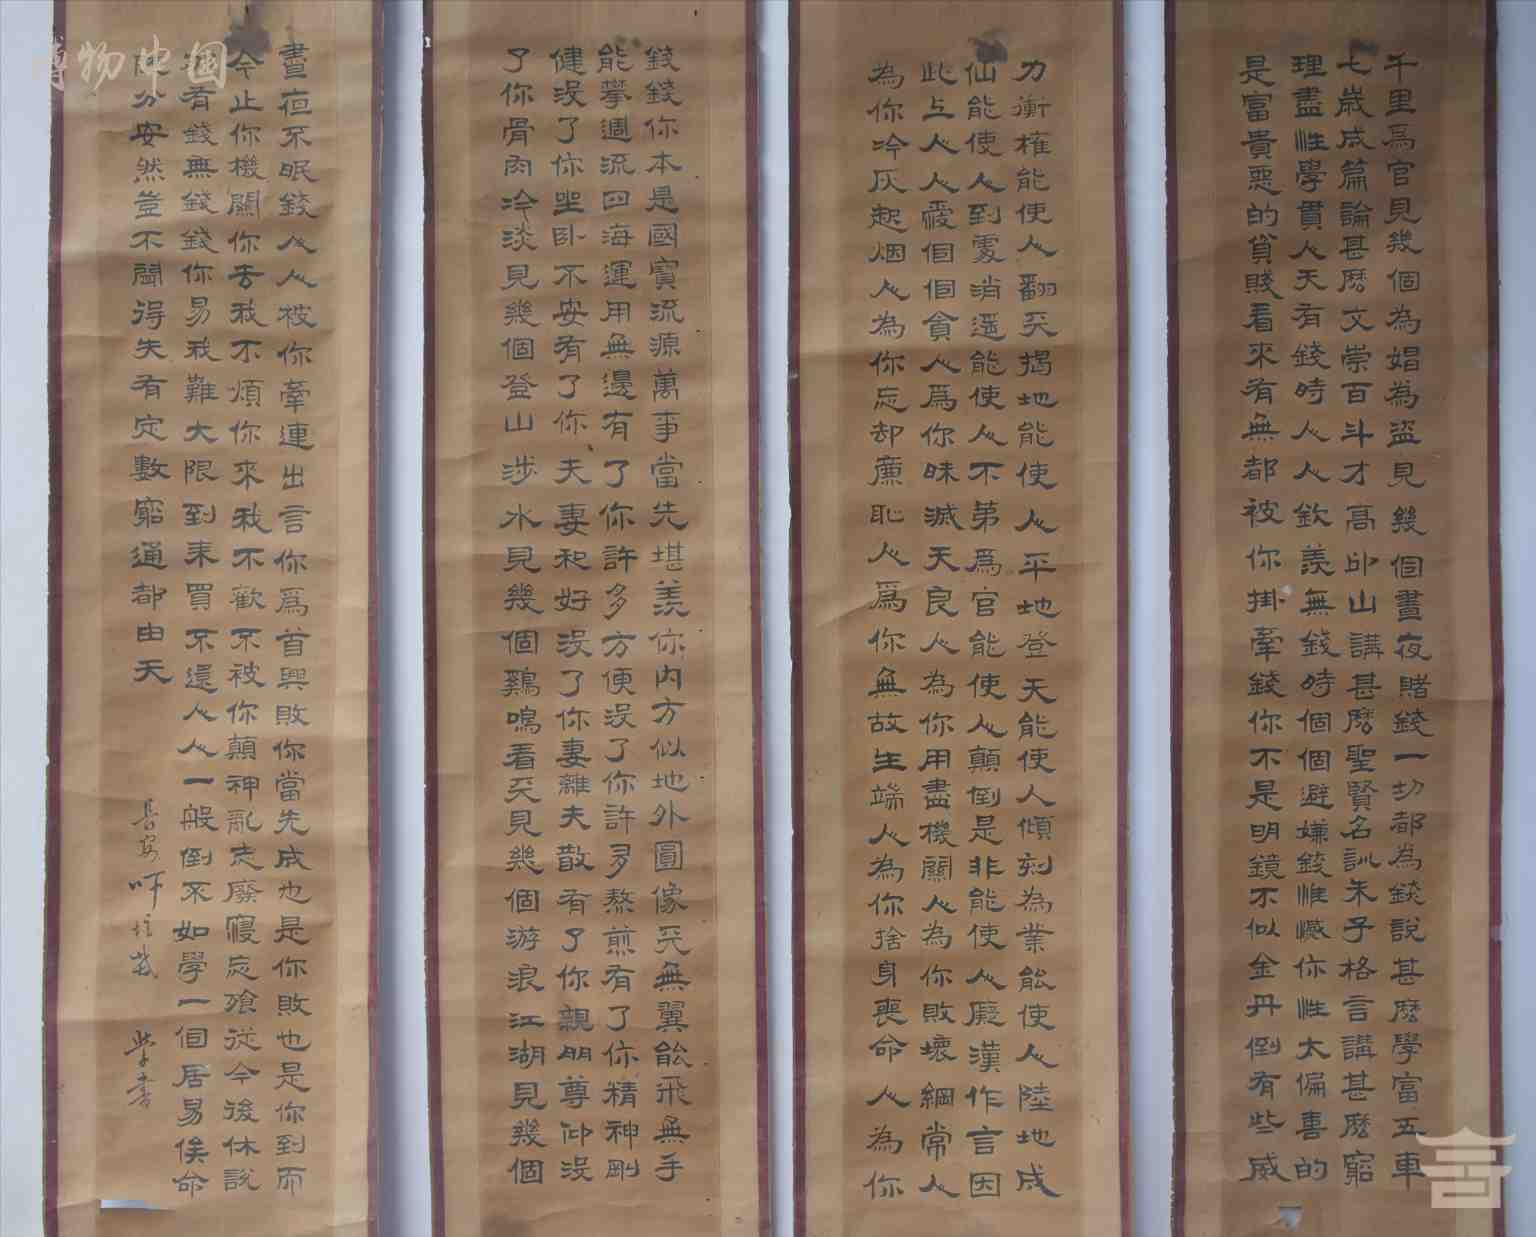 錢錢你本是國寶流源萬事當先堪羨你內方似地外圓像天無翼能飛無手
能攀週流四海運用無邊有了你許多方便沒了你許多熬煎有了你精神剛
健沒了你坐卧不安有了你夫妻和好沒了你妻離夫散有了你親朋尊仰沒
了你骨肉冷淡見幾個登山涉水見幾個鷄鳴看天見幾個游浪江湖見幾個
千里爲官見幾個為娼為盜見幾個晝夜賭錢一切都為錢說甚麼學富五車
七歲成篇論甚麼文崇百斗才高卭山講甚麼聖賢名訓朱子格言講甚麼窮
理盡性學貫人天有錢時人人欽羨無錢時個個避嫌錢惟憾你性太偏喜的
是富貴惡的貧賤看來有無都被你掛牽錢你不是明鏡不似金丹倒有些威
力衡權能使人翻天揭地能使人平地登天能使人傾刻為業能使人陸地成
仙能使人到處消遥能使人不第爲官能使人顛倒是非能使人癡漢作言因
此上人人愛個個貪人爲你昧滅天良人為你用盡機關人為你敗壞綱常人
為你冷灰起烟人為你忘却廉恥人爲你無故生端人為你捨身喪命人為你
晝夜不眠錢人人被你牽連出言你爲首興敗你當先成也是你敗也是你到而
今止你機關你去我不煩你來我不歡不被你顛神亂志廢寢忘飱從今後休說
有錢無錢錢你易我難大限到來買不還人人一般倒不如學一個居易俟命
分安然豈不聞得失有定數窮通都由天
長安
學書
博物中国